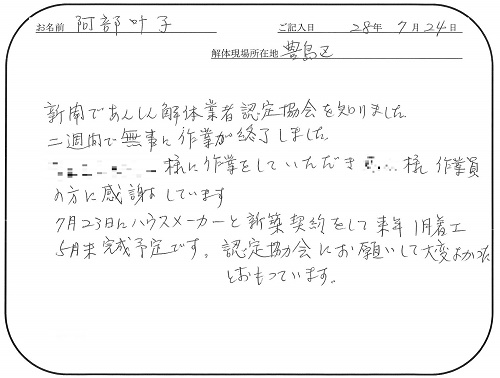 お名前 阿部叶子 ご記入日 28年 7月24日
解体現場所在地 豊島区
新聞であんしん解体業者認定協会を知りました
二週間で無事に作業が終了しました
様に作業をしていただき 様、作業員
の方に感謝しています
7月23日にハウスメーカーと新築契約をして来年1月着工
5月末完成予定です。認定協会にお願いして大変よかった
とおもっています。